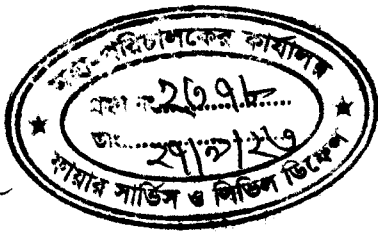 উপ-পরিচালকের কার্যালয়
গ্রহণ নং ২৩৭৮
তাং ২৭/৯/২৩
ফায়ার সার্ভিস ও সিভিল ডিফেন্স